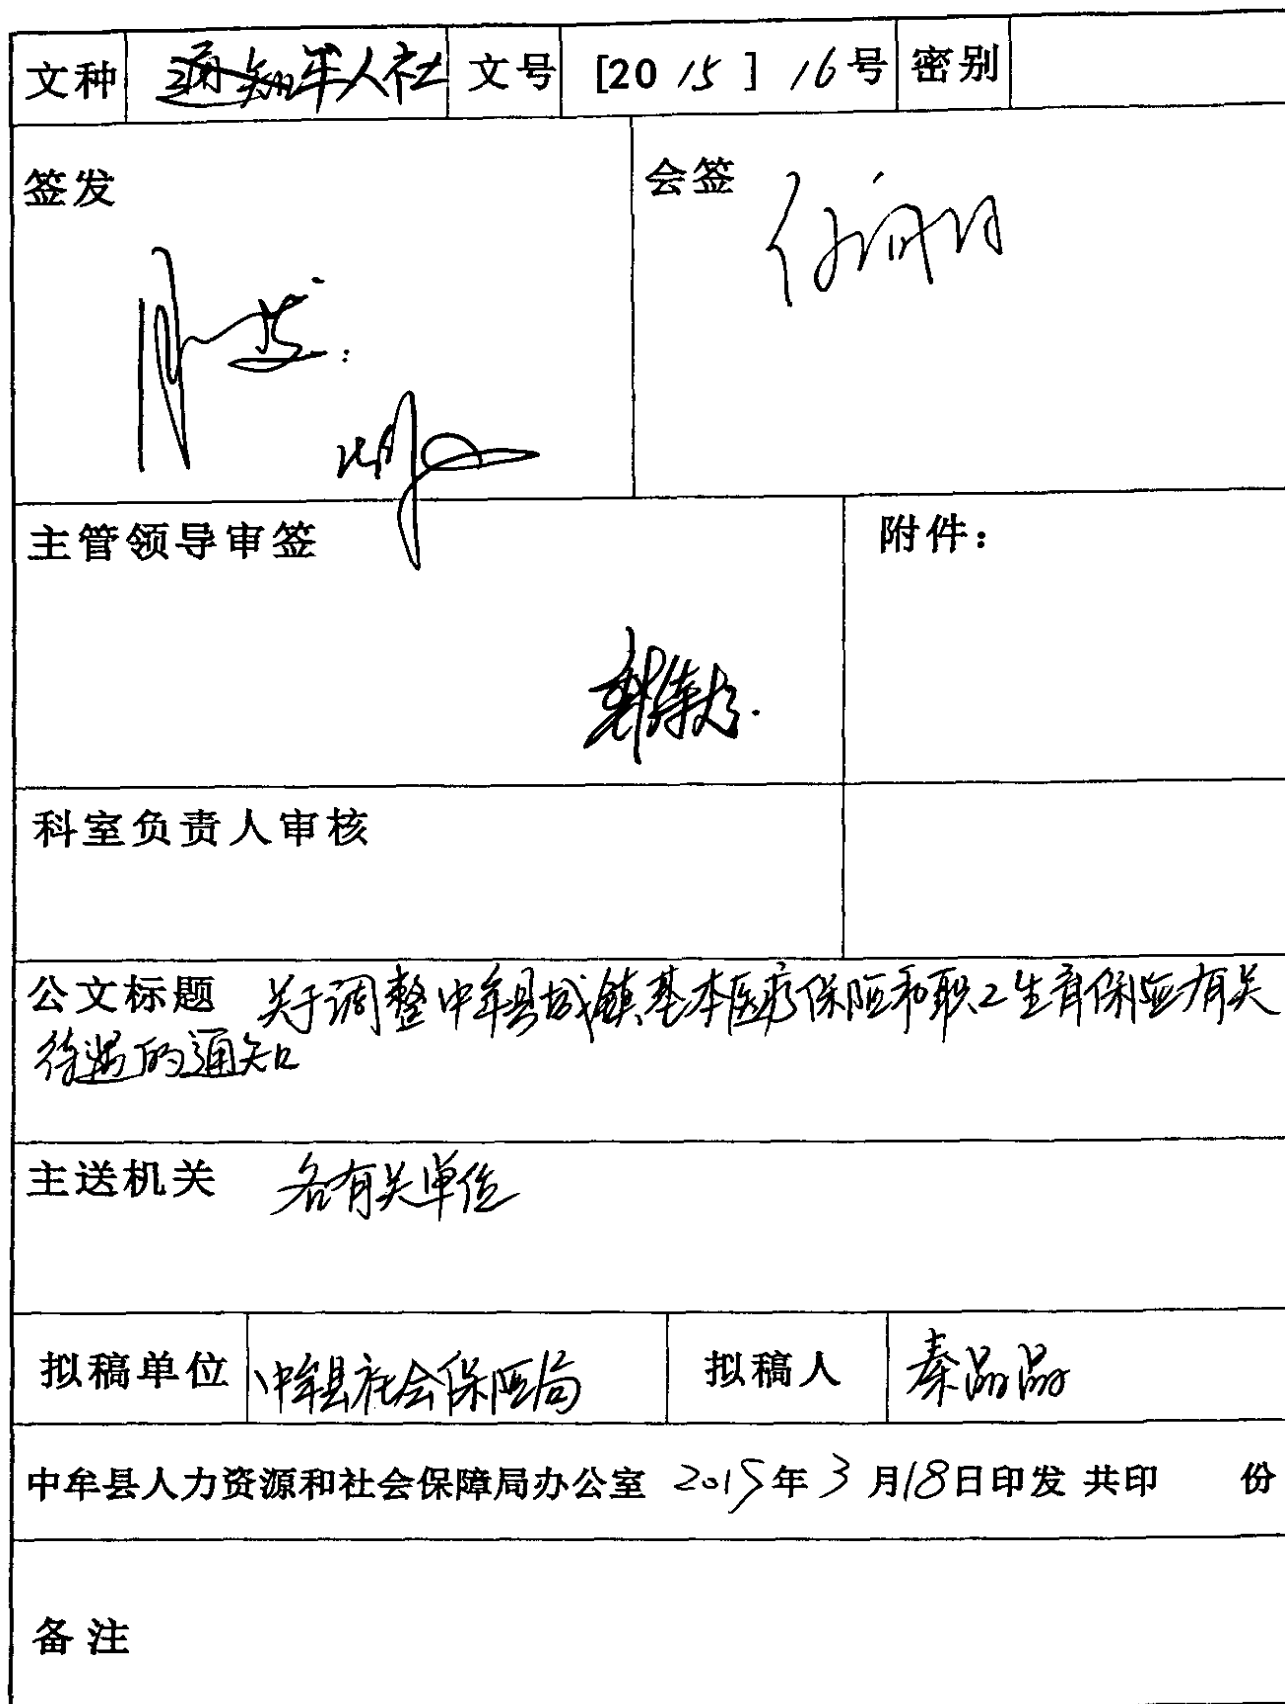 文种 牟人社 文号 [2015] 16号 密别
签发 会签
主管领导审签 附件：
科室负责人审核
公文标题 关于调整中牟县城镇基本医疗保险和职工生育保险有关
待遇的通知
主送机关 各有关单位
拟稿单位 中牟县社会保险局 拟稿人 秦晶晶
中牟县人力资源和社会保障局办公室 2015年3月18日印发 共印 份
备注